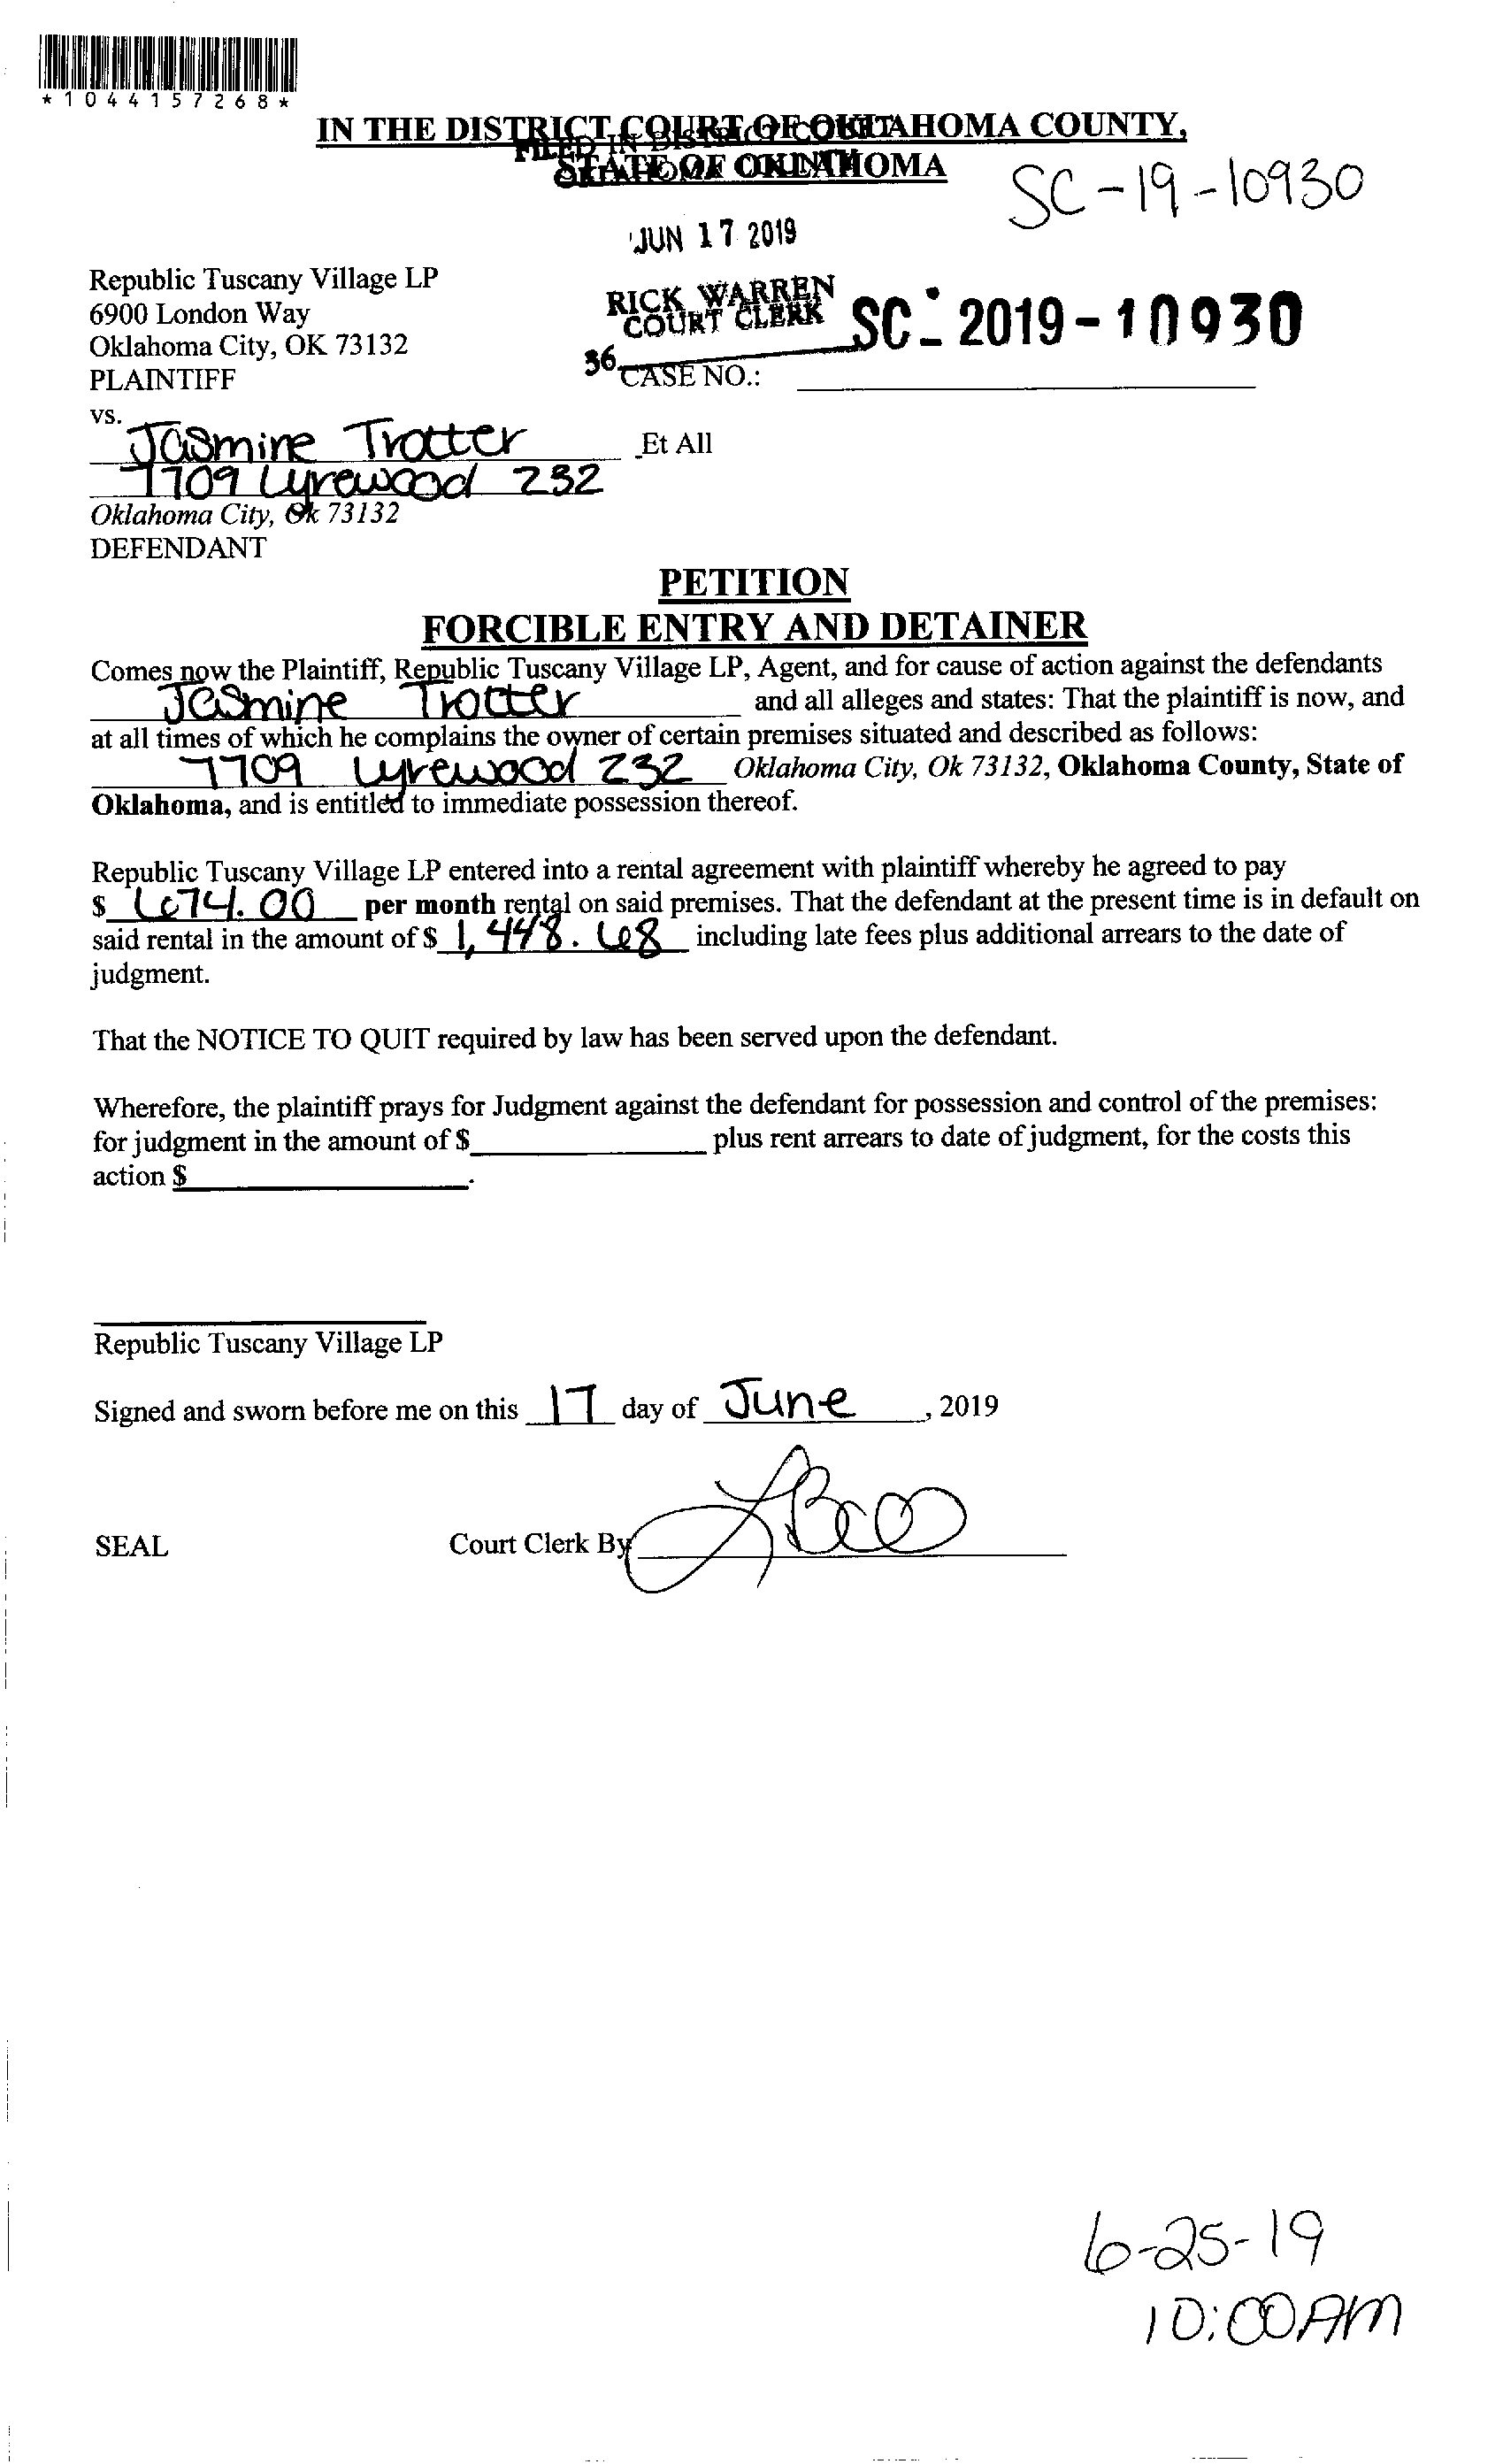 *1044157268*
IN THE DISTRICT COURT OF OKLAHOMA COUNTY,
STATE OF OKLAHOMA
FILED IN DISTRICT COURT
OKLAHOMA COUNTY
SC-19-10930
JUN 17 2019
Republic Tuscany Village LP
6900 London Way
Oklahoma City, OK 73132
PLAINTIFF
RICK WARREN
COURT CLERK
SC - 2019-10930
36
CASE NO.:
vs.
Jasmine Trotter Et All
7709 Lyrewood 232
Oklahoma City, Ok 73132
DEFENDANT
PETITION
FORCIBLE ENTRY AND DETAINER
Comes now the Plaintiff, Republic Tuscany Village LP, Agent, and for cause of action against the defendants
Jasmine Trotter and all alleges and states: That the plaintiff is now, and
at all times of which he complains the owner of certain premises situated and described as follows:
7709 Lyrewood 232 Oklahoma City, Ok 73132, Oklahoma County, State of
Oklahoma, and is entitled to immediate possession thereof.
Republic Tuscany Village LP entered into a rental agreement with plaintiff whereby he agreed to pay
$ 674.00 per month rental on said premises. That the defendant at the present time is in default on
said rental in the amount of $ 1,448.68 including late fees plus additional arrears to the date of
judgment.
That the NOTICE TO QUIT required by law has been served upon the defendant.
Wherefore, the plaintiff prays for Judgment against the defendant for possession and control of the premises:
for judgment in the amount of $ plus rent arrears to date of judgment, for the costs this
action $ .
Republic Tuscany Village LP
Signed and sworn before me on this 17 day of June, 2019
SEAL Court Clerk By
6-25-19
10:00AM